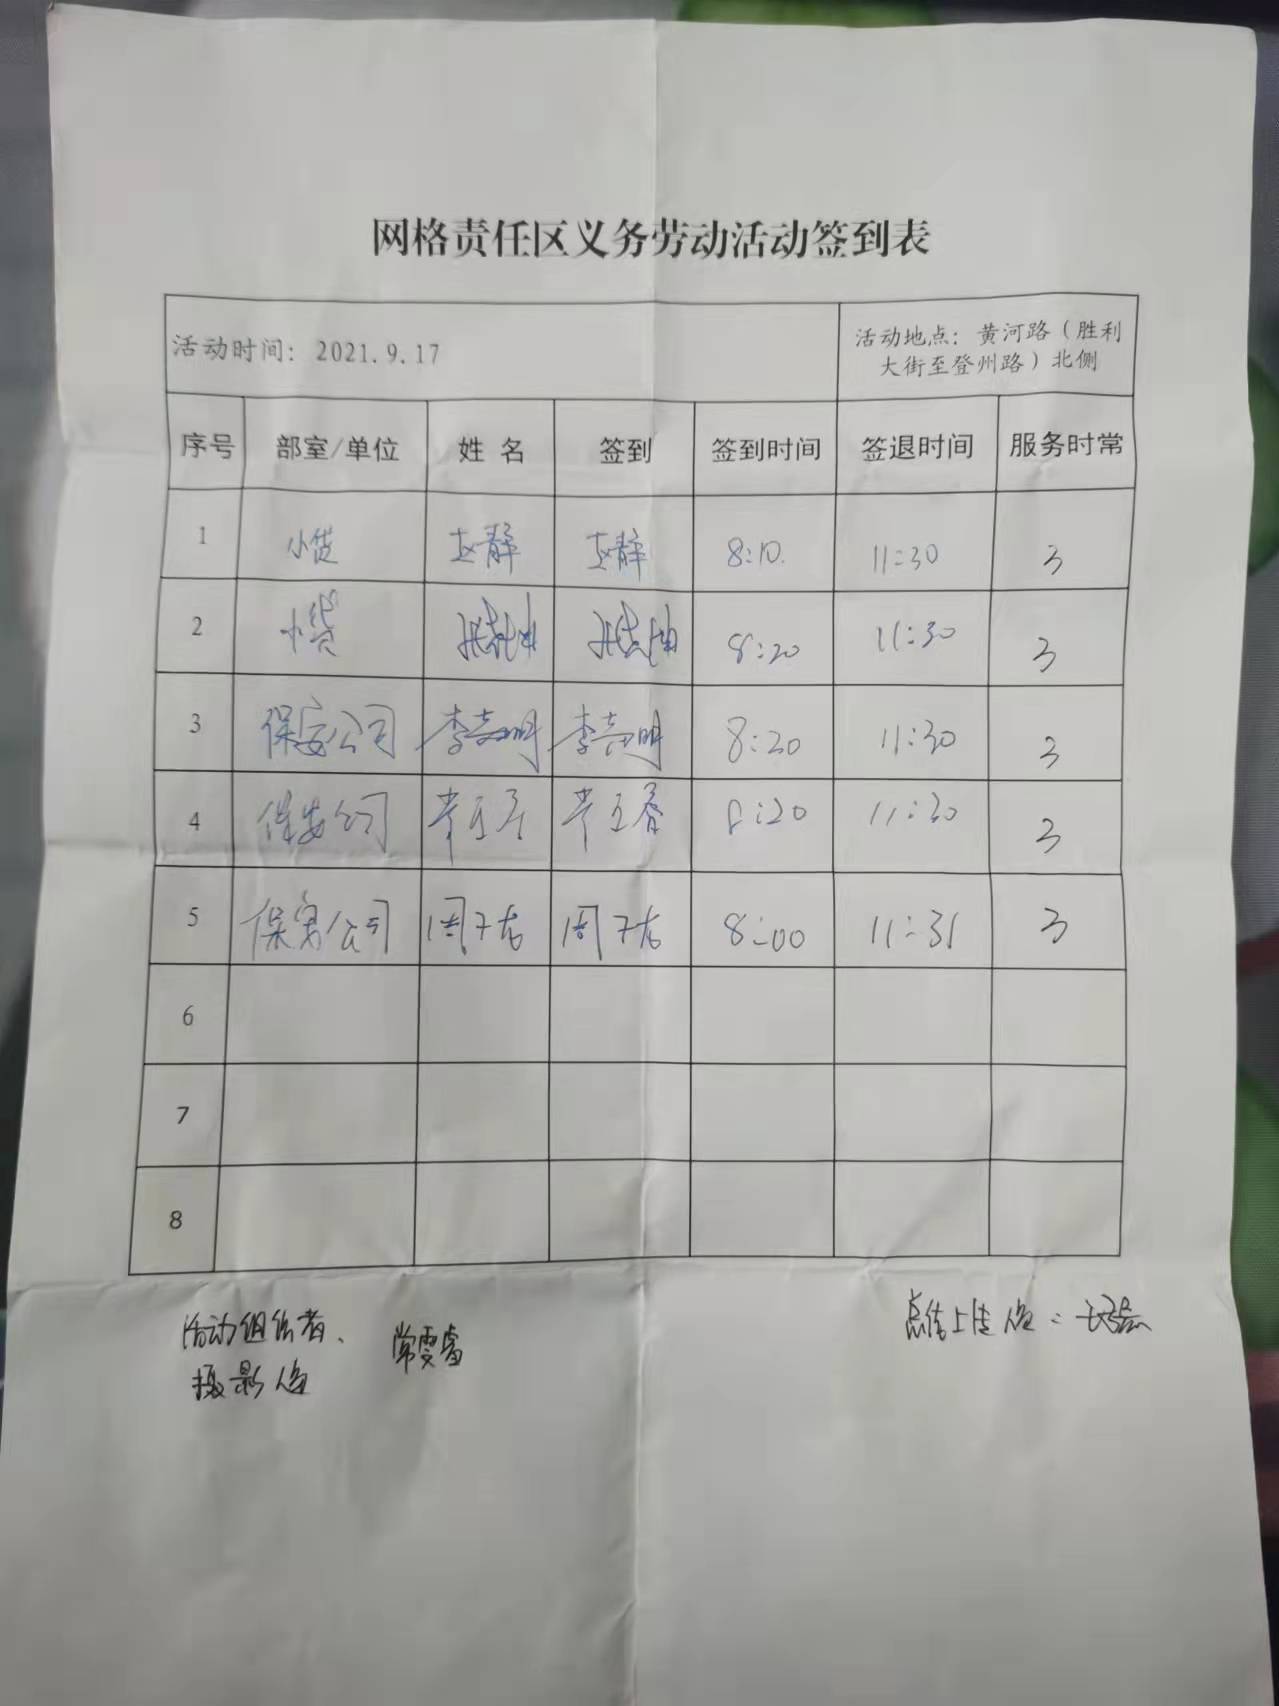 网格责任区义务劳动活动签到表
活动时间：2021.9.17
活动地点：黄河路（胜利
大街至登州路）北侧
序号 部室/单位 姓 名 签到 签到时间 签退时间 服务时常
1 小贷 赵静 赵静 8:10. 11:30 3
2 小贷 8:20 11:30 3
3 保安公司 8:20 11:30 3
4 保安公司 8:20 11:30 3
5 保安公司 8:00 11:31 3
6
7
8
活动组织者、
摄影人员